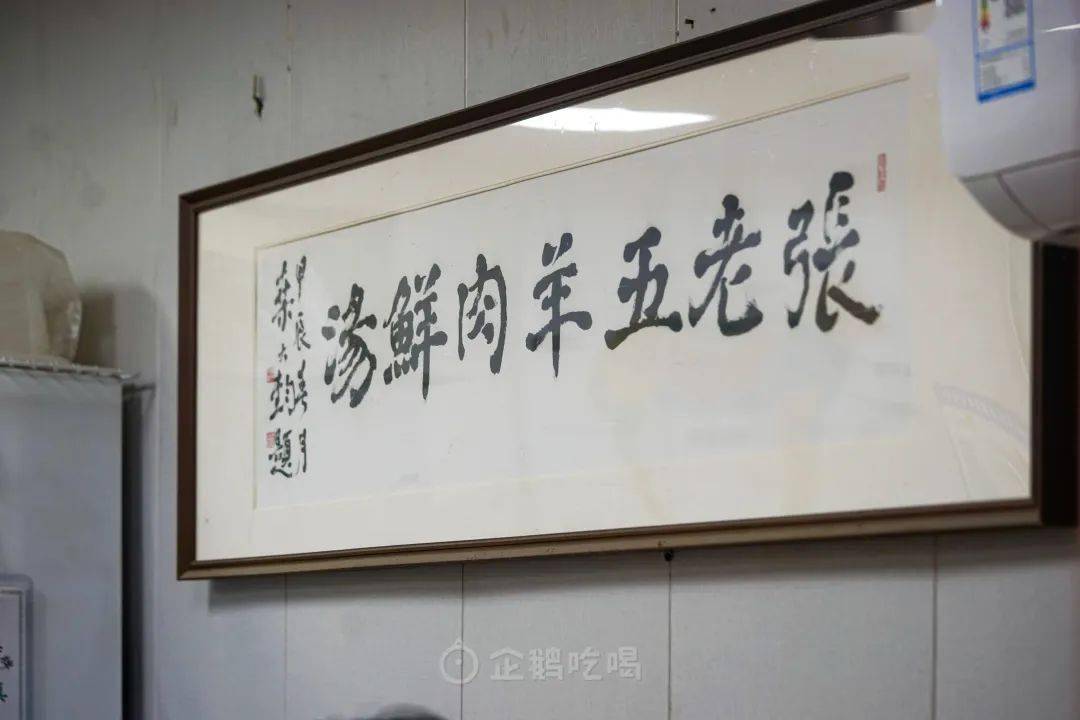 張老五羊肉鮮湯
甲辰春月
大鈞題
企鹅吃喝